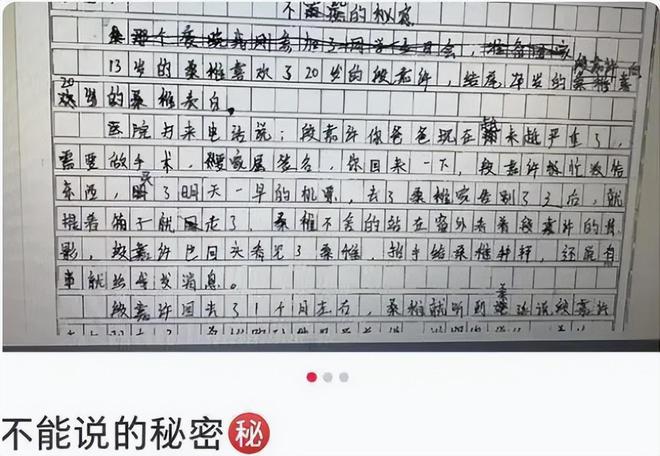 不能说的秘密
13岁的桑稚喜欢了20岁的段嘉许，结尾
20
欢岁的桑稚表白。
医院打来电话说；段嘉许你爸爸现在越来越严重了，
需要做手术，要家属签名，你回来一下，段嘉许赶忙收拾
东西，买了明天一早的机票，去了桑稚家告别了之后，就
提着箱子就走了，桑稚不舍的站在窗外看着段嘉许的背
影，段嘉许也回头看见了桑稚，招手给桑稚拜拜，还说有
事就给我发消息。
段嘉许回去了1个月左右，桑稚就听到桑延说段嘉许
不能说的秘密㊙